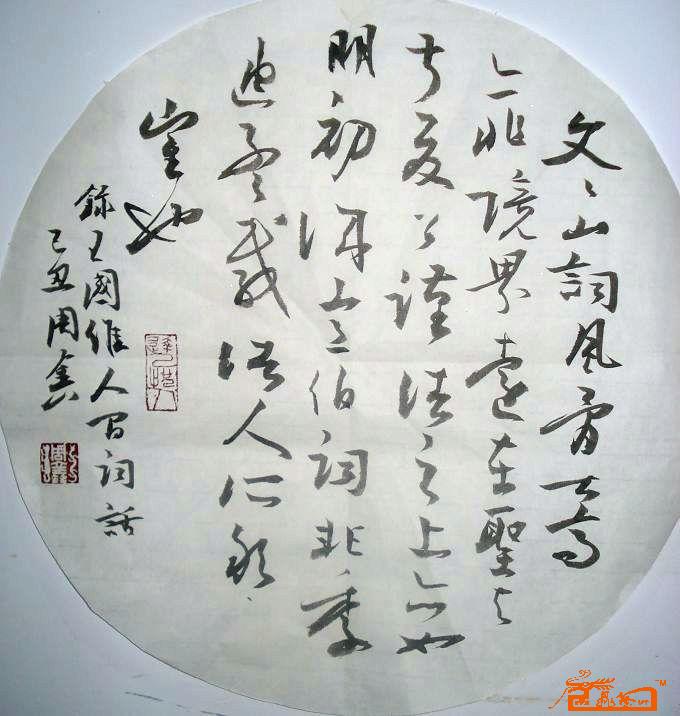 文々山詞風骨甚高
亦非境界遠在聖与
叔夏公謹諸之上亦如
明初誠意伯詞非季
迪孟載諸人所敢
望也
錄王國維人间詞話
己丑周